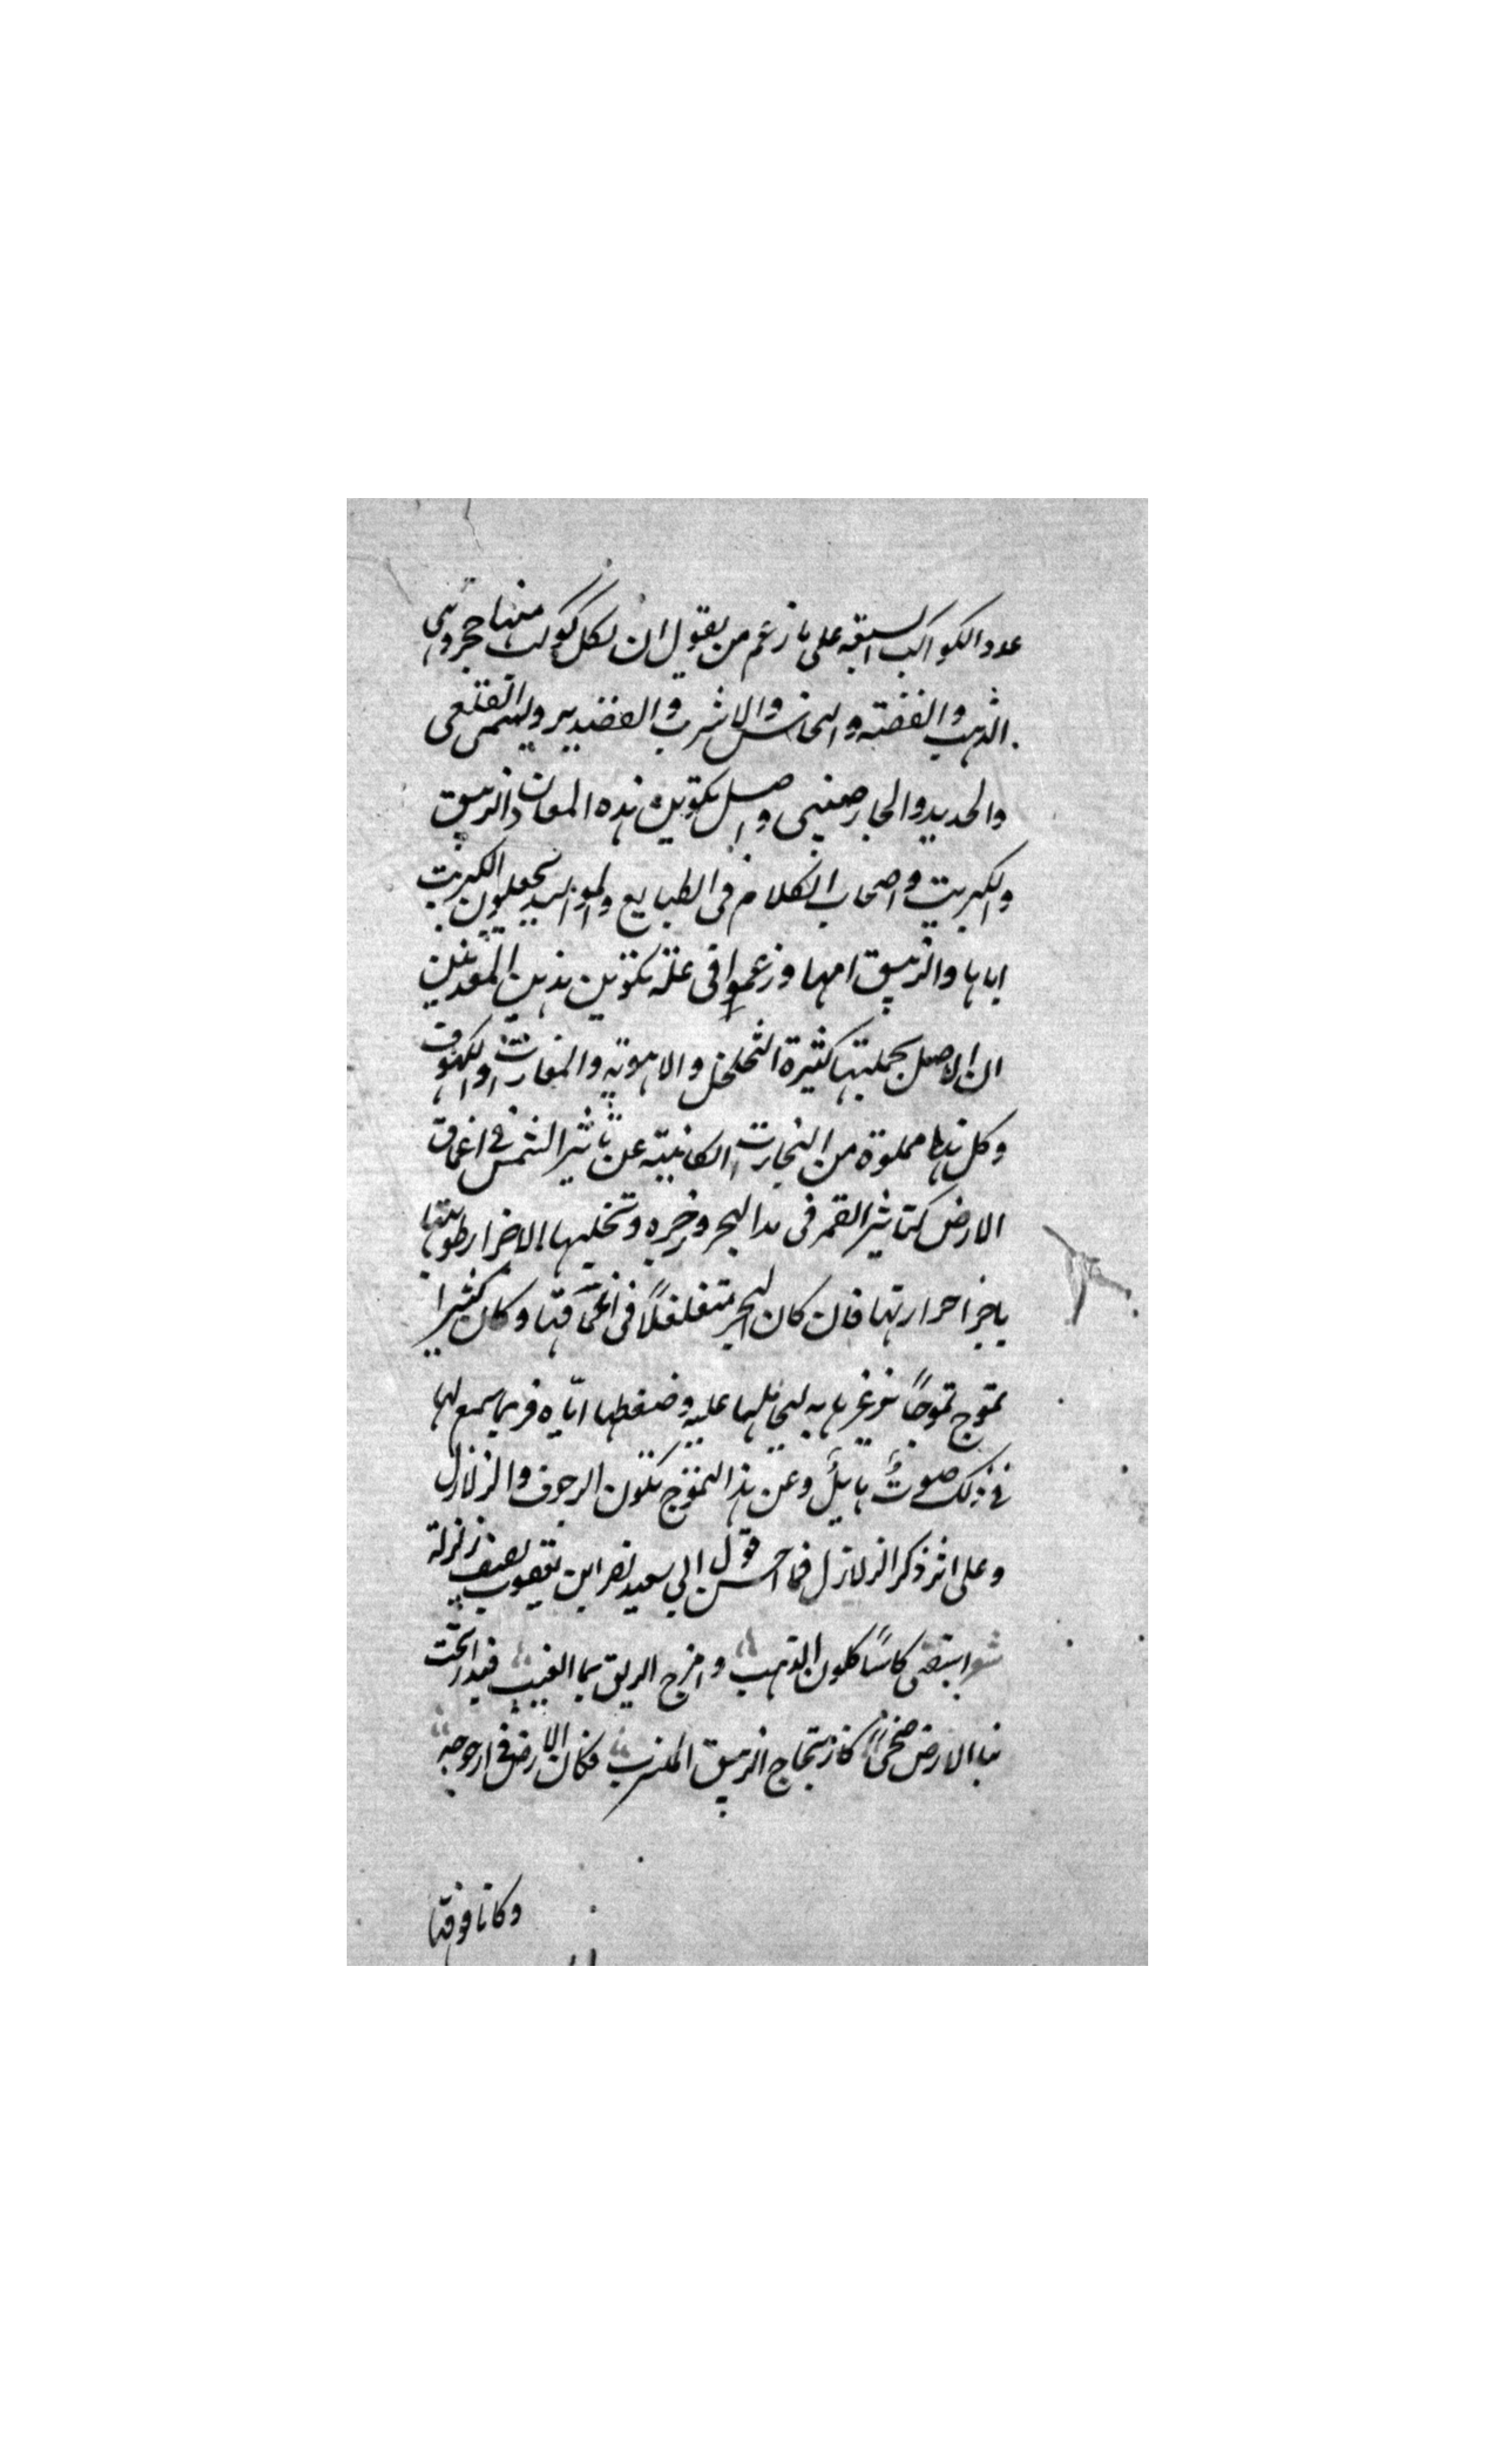 عدد الكواكب السبعة على ما زعم من يقول ان لكل كوكب منها حجر وهى
الذهب والفضة والنحاس والاشرب والقضدير ويسمى القلعى
والحديد والخارصينى واصل تكوين هذه المعادن الزيبق
والكبريت واصحاب الكلام فى الطبايع والمواليد يجعلون الكبريت
اباها والزيبق امها وزعموا فى علة تكوين هذين المعدنين
ان الارض بجملتها كثيرة التخلخل والاهوية والمغارات والكهوف
وكل هذا مملوة من البخارات الكائنة عن تأثير الشمس فى اعماق
الارض كتاثير القمر فى مد البحر وجزره وتحليها الاخرا رطوبتها
باجزا حرارتها فان كان البخر متغلغلاً فى اعماقها وكان كثيرا
تموج تموجاً تزعزعها به لتحاملها عليه وضغطها ايّاه فربما سمع لها
فى ذلك صوتٌ هايلٌ وعن هذا التموّج تكون الرجوف والزلازل
وعلى اثر ذكر الزلازل فما احسن قول ابى سعيد نصر ابن يعقوب يصف زلزلة
شعر استقى كاسًا كلون الذهب وامزج الريق بما العنب فقد ارتجت
بنا الارض ضحىً كارتجاج الزيبق المنسرب فكان الارض فى ارجوحة
وكانا فوقها